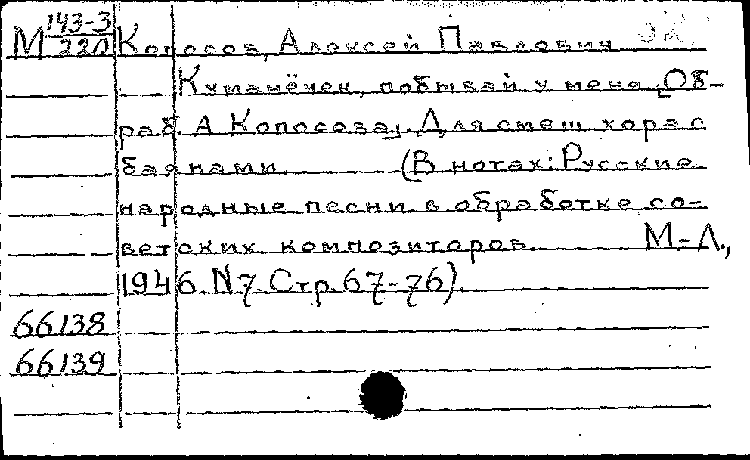 М 143-3/220 Копосов, Алексей Павлович
Куманёчек, побывай у меня [Об-
раб. А Копосова]. Для смеш хора с
баянами. (В нотах: Русские
народные песни в обработке со-
ветских композиторов. М-Л.,
1946. N7 Стр. 67-76).
66138
66139